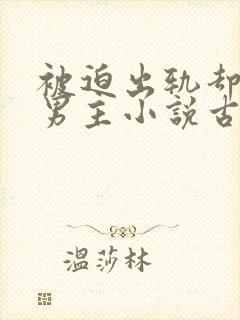 被迫出轨却
男主小説古
溫莎林